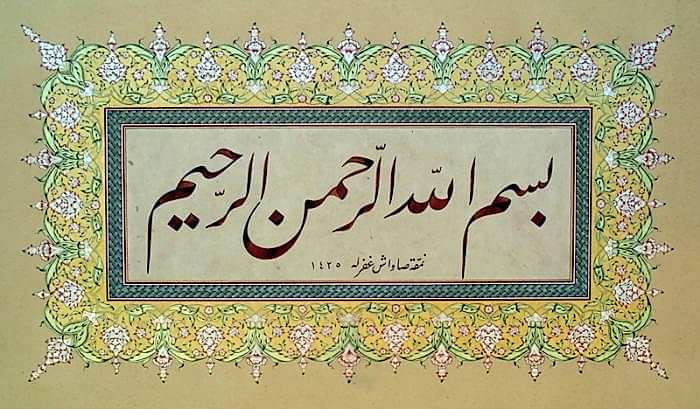 بسم الله الرّحمن الرّحيم
نمقه صاواش غفرله ١٤٢٥